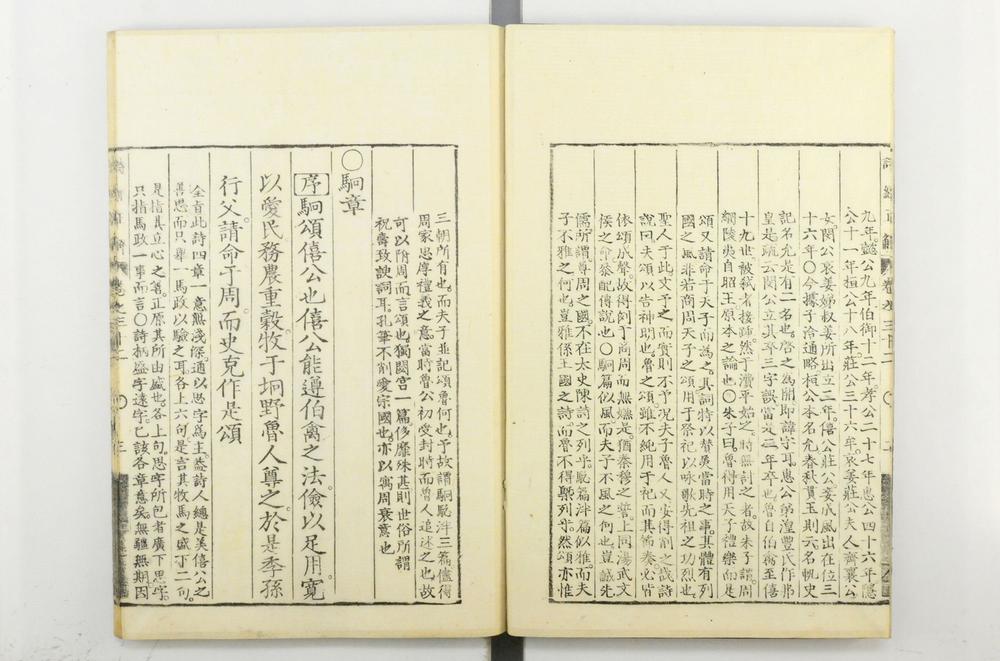 九年懿公九年伯御十二年孝公二十七年惠公四十六年隱
公十一年桓公十八年莊公三十六年哀姜莊公夫人齊襄公
女閔公哀姜娣叔姜所出立二年僖公莊公妾成風出在位三
十六年〇今據子洽通略桓公本名允春秋貫玉則云名軌史
記名允是有二名也啓之為開即諱字耳惠公弟湟豐氏作弗
皇是疏云閔公立其卒三字誤當是三年卒也魯自伯禽至僖
十九世被弒者接踵然于瀆平始之時無討之者故朱子謂周
綱陵夷自昭王原本之論也〇朱子曰魯得用天子禮樂而是
頌又請命于天子而為之其詞特以贊美當時之事其體有列
國之風非若商周天子之頌用于祭祀以咏歌先祖之功烈也
聖人于此文予之而實則不予況夫子魯人又安得削之哉詩
說曰夫頌以告神明也魯之頌雖不純用于祀而其節奏必皆
依頌成聲故得列于商周而無嫌是猶秦穆之誓上同湯武文
侯之命參配傳說也〇駉篇似風而夫子不風之何也豈誠先
儒所謂尊周之國不在太史陳詩之列乎駜篇泮篇似雅而夫
子不雅之何也豈雅係王國之詩而魯不得槩列乎然頌亦惟
三朝所有也而夫子並記頌魯何也予故謂駉駜泮三篇儘得
周家思厚禮義之意當時魯公初受封時而魯人追述之也故
可以附周而言頌也獨閟宮一篇侈靡殊甚則世俗所謂
祝壽致諛詞耳孔筆不削愛宗國也亦以寓周衰意也
〇駉章
序駉頌僖公也僖公能遵伯禽之法儉以足用寬
以愛民務農重穀牧于坰野魯人尊之於是季孫
行父請命于周而史克作是頌
全旨此詩四章一意無淺深通以思字為主蓋詩人總是美僖公之
善思而只舉一馬政以驗之耳各上六句是言其牧馬之盛下二句
是指其立心之善正原其所由盛也各上句思字所包者廣下思字
只指馬政一事而言〇詩柄盛字遠字已該各章意矣無疆無期因